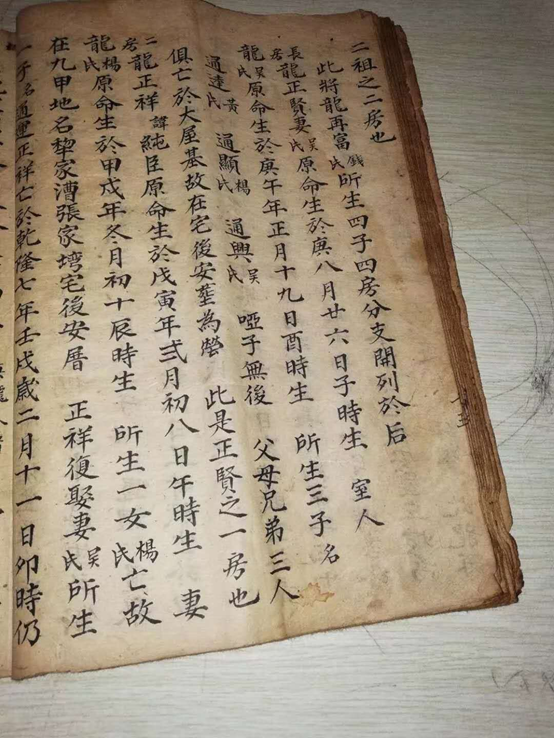 二祖之二房也
此將龍再富錢氏所生四子四房分支開列於后
長房龍正賢妻吴氏原命生於庚八月廿六日子時生 室人
龍吴氏原命生於庚午年正月十九日酉時生 所生三子名
通達黃氏 通顯楊氏 通興吴氏 啞子無後 父母兄弟三人
俱亡於大屋基故在宅後安塟為塋 此是正賢之一房也
二房龍正祥諱純臣原命生於戊寅年弍月初八日午時生 妻
龍楊氏原命生於甲戌年冬月初十辰時生 所生一女楊氏亡故
在九甲地名犂家漕張家塆宅後安厝 正祥復娶妻吴氏所生
一子名通 正祥亡於乾隆七年壬戌歲二月十一日卯時仍